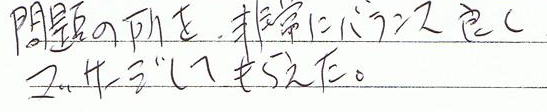 問題の所を、非常にバランス良く
マッサージしてもらえた。